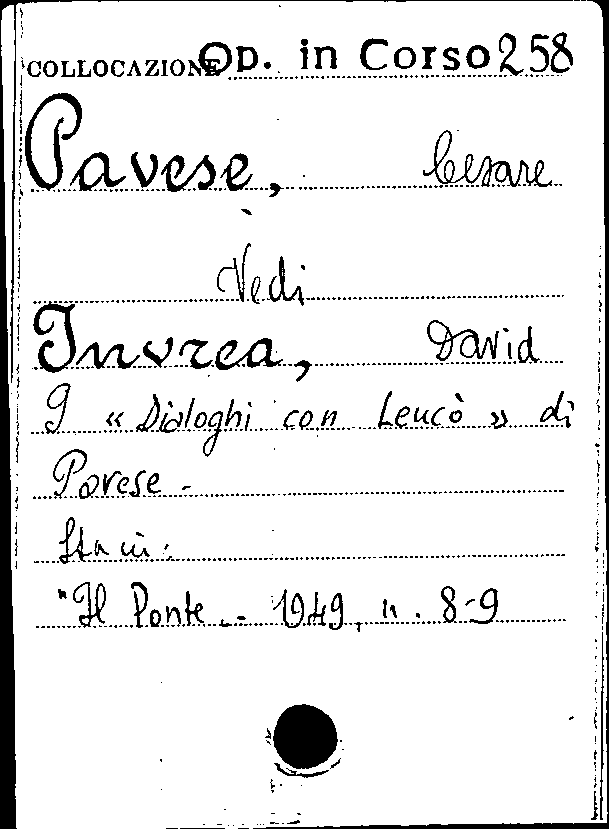 COLLOCAZIONE Op. in Corso 258
Pavese, Cesare
Vedi
Invrea, David
I « Dialoghi con Leucò » di
Pavese -
Sta in:
"Il Ponte.- 1949, n. 8-9